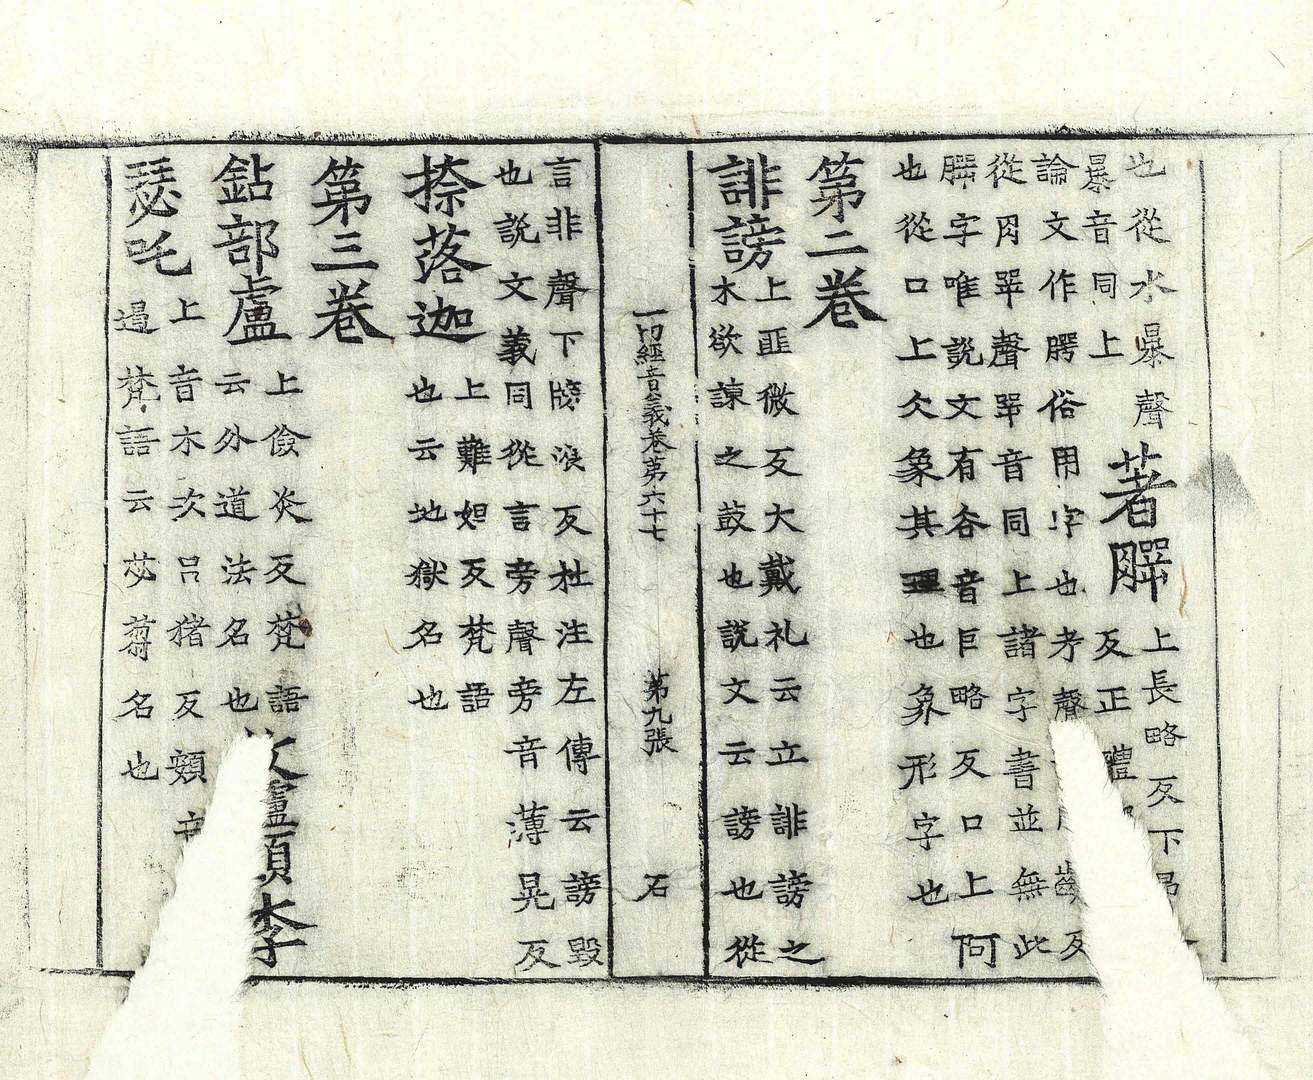 也從水㬥聲
㬥音同上
著𦜜
上長略反下昂
反正體
論文作腭俗用字也考聲
齒反
從肉㖾聲㖾音同上諸字書並無此
𦜜字唯説文有谷音巨略反口上阿
也從口上仌象其理也象形字也
第二卷
誹謗
上匪微反大戴礼云立誹謗之
木欲諫之鼓也説文云謗也從
一切經音義卷第六十七 第九張 石
言非聲下牓浪反杜注左傳云謗毀
也説文義同從言旁聲旁音薄晃反
捺落迦
上難妲反梵語
也云地獄名也
第三卷
鉆部盧
上儉炎反梵語
云外道法名也
盧頞李
瑟吒
上音木次呂猪反頞
遏梵語云苾蒭名也